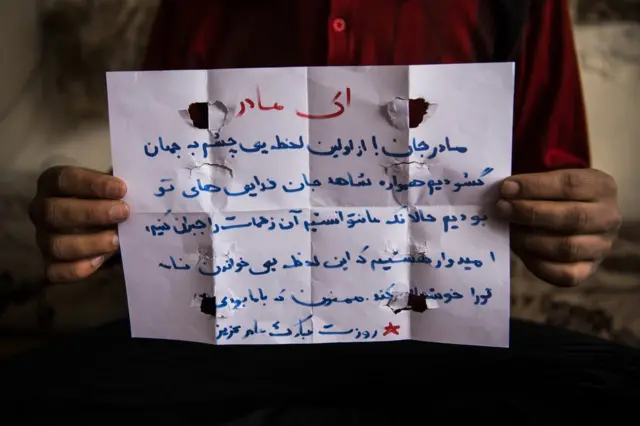 ای مادر
مادر جان! از اولین لحظه یی چشم به جهان
گشودیم همواره شاهد جان فدایی های تو
بودیم حالا که ما نتوانستیم آن زحمات را جبران کنیم،
امیدوار هستیم که این لحظه یی خواندن نامه
تورا کند ممنون که بابا بودی
روزت مبارک مادر عزیز